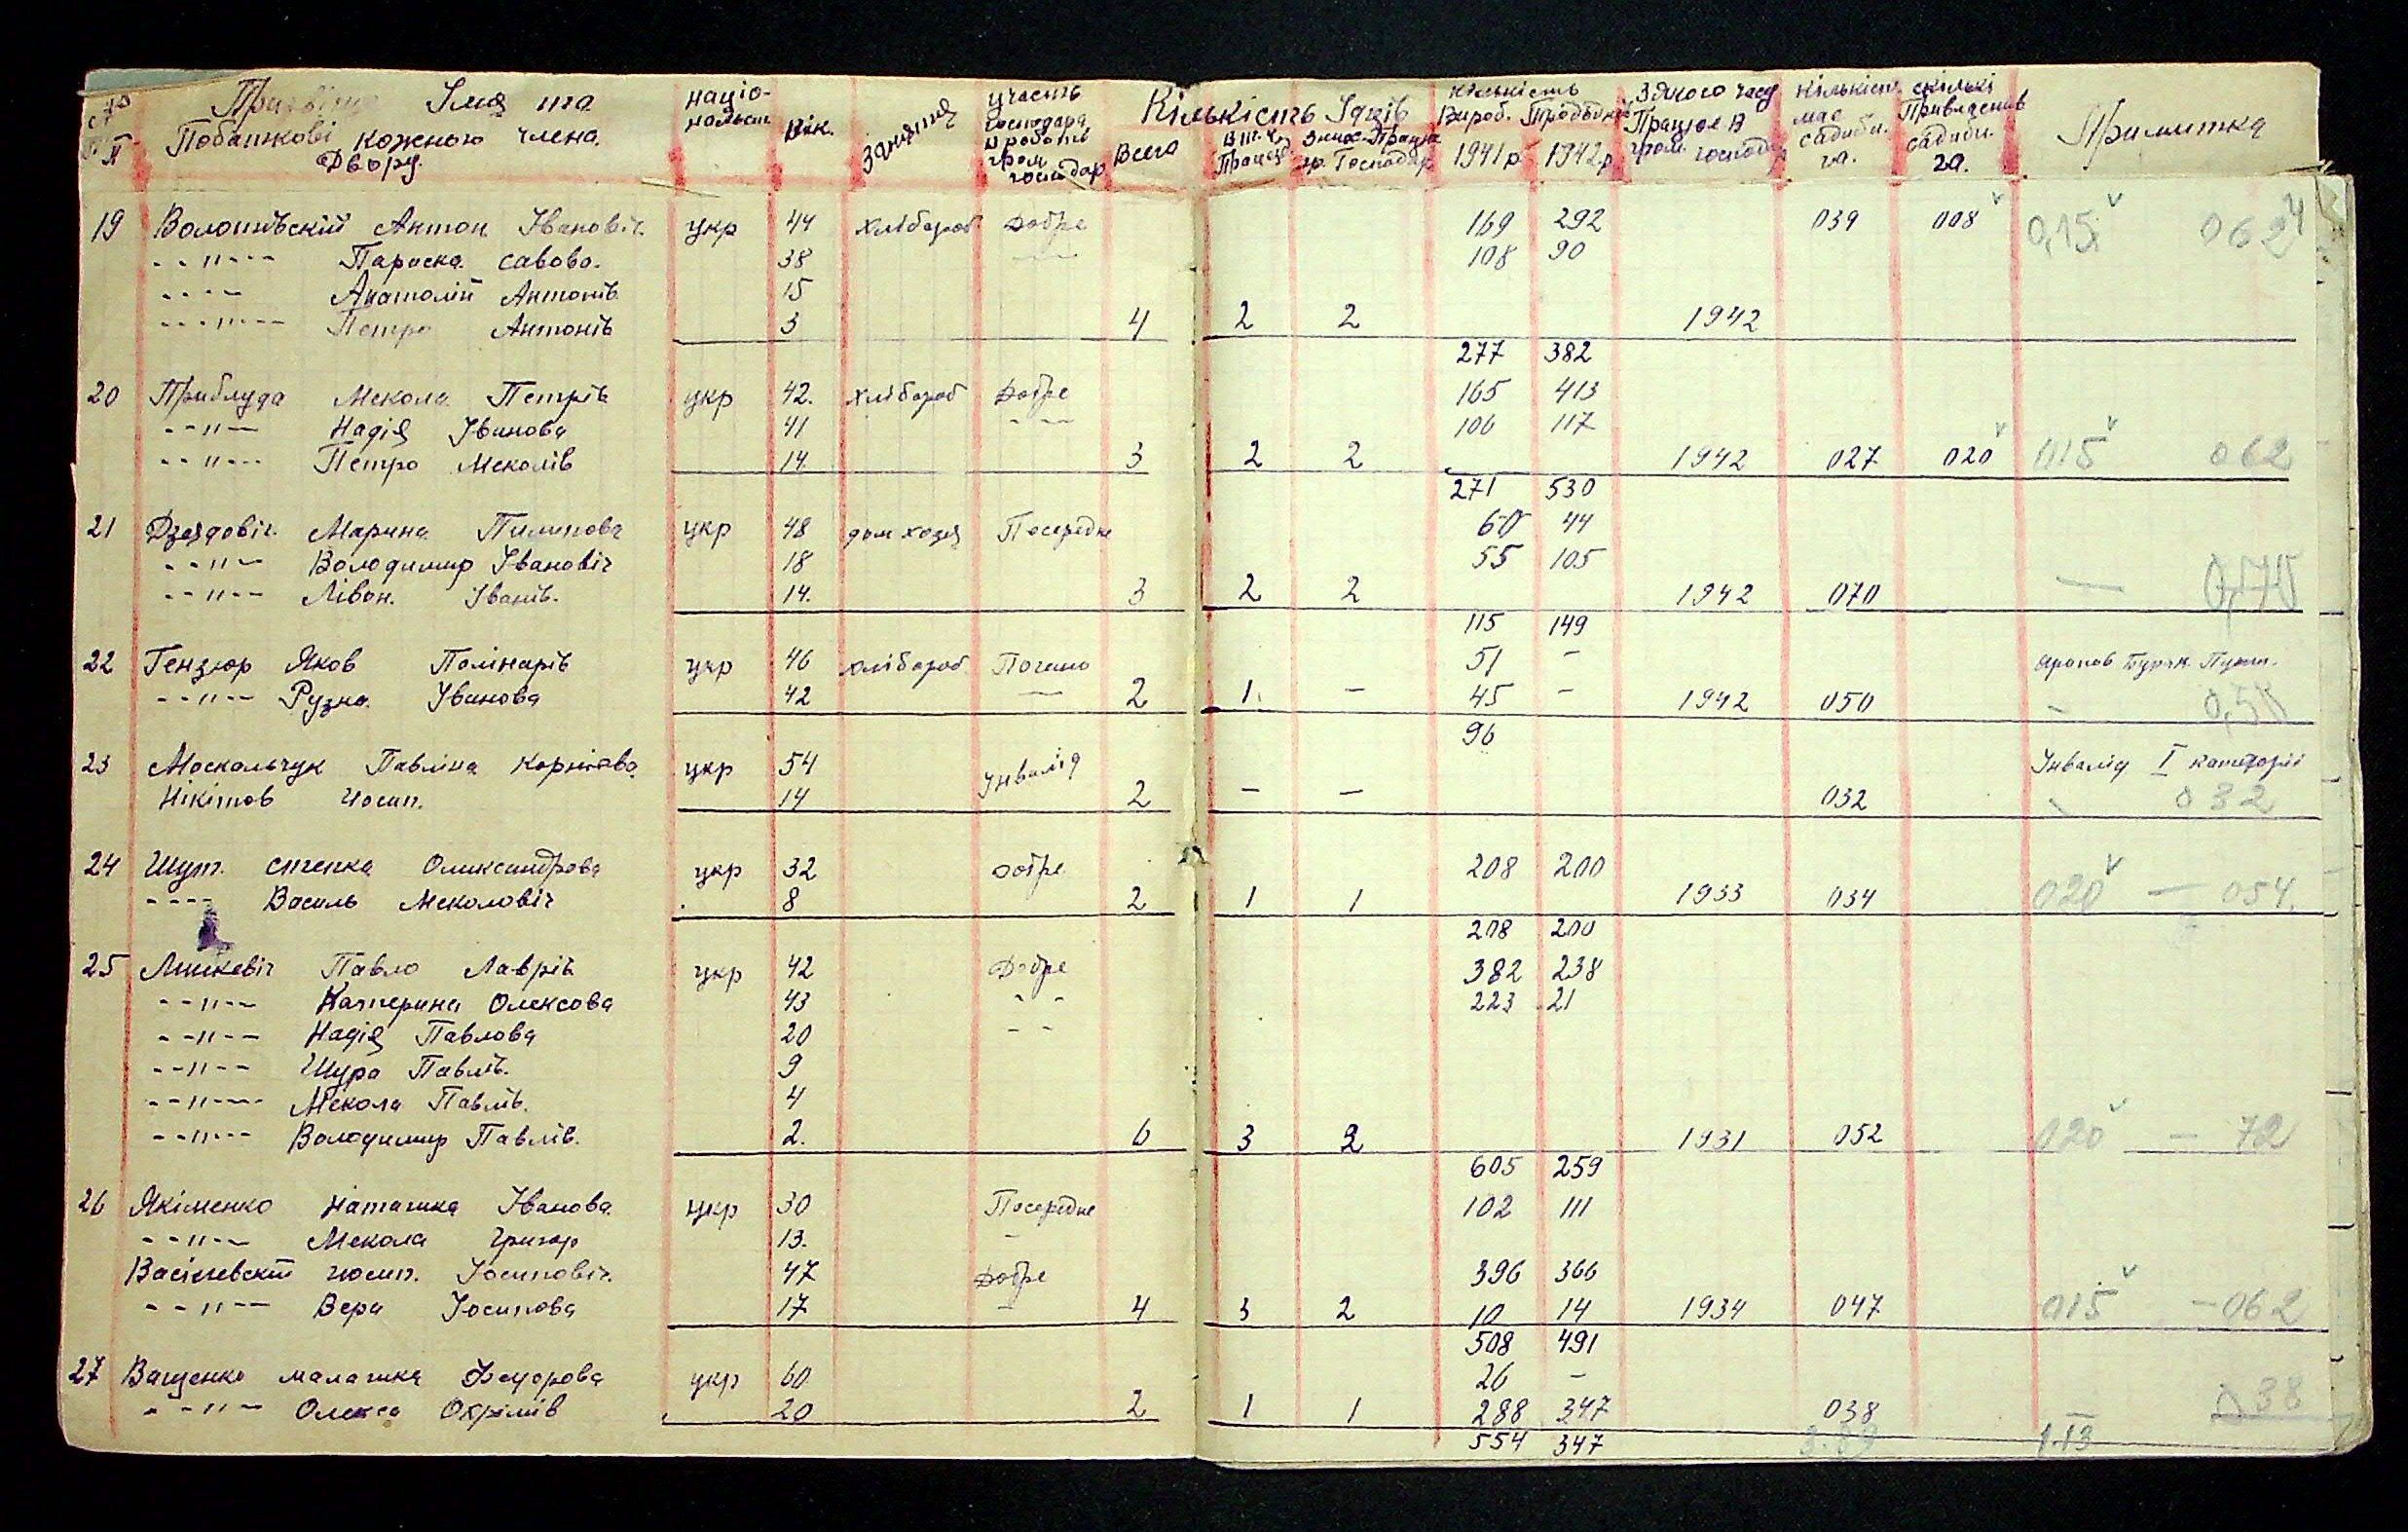 № п/п Призвіще Імя та Побатькові кожного члена Двору. Націо-нальн. Вік. Заняття участь господара в роботі гром господар Кількість Їдців Всего В т.ч. Працезд. З них Працює гр. Господар. Кількість Вироб. Трудоднів 1941р 1942р З якого часу Працює в гром господар Кількіст. має садиби. га. скількі Приєднив садиби. га. Примітка
19 Волотівский Антон Івановіч. укр 44 хлібороб Добре 169 292 039 008 0,15 062
--"-- Параска савова. 38 108 90
--"-- Анатолій Антонів 15
--"-- Петро Антонів 3 4 2 2 1942
277 382
20 Приблуда Мекола Петрів укр 42. хлібороб Добре 165 413
--"-- Надія Іванова 41 106 117
--"-- Петро Меколів 14. 3 2 2 1942 027 020 015 062
271 530
21 Дзядовіч. Марина Пилипова укр 48 дом хозя Посередне 60 44
--"-- Володимир Івановіч 18 55 105
--"-- Лівон. Іванів. 14. 3 2 2 1942 070 — 0,70
115 149
22 Гензюр Яков Полінарів укр 46 хлібороб Погано 51 -
--"-- Рузна. Іванова 42 2 1. - 45 - 1942 050 - 0,50
96
23 Москальчук Павліна Корніева укр 54 Інвалід Інвалід I категорії
Нікітов Йосип. 14 2 - - 032 032
24 Шут. степка Олександрова укр 32 добре 208 200
---- Василь Меколовіч 8 2 1 1 1933 034 020 — 054.
208 200
25 Лишкевіч Павло Лаврів укр 42 Добре 382 238
--"-- Катерина Олексова 43 - - 223 21
--"-- Надія Павлова 20 - -
--"-- Шура Павлів. 9
--"-- Мекола Павлів. 4
--"-- Володимир Павлів. 2. 6 3 2 1931 052 020 — 72
605 259
26 Якіменко Наташка Іванова укр 30 Посередне 102 111
--"-- Мекола Григор 13. -
Васілевский йосип. Йосиповіч. 47 Добре 396 366
--"-- Вера Йосипова 17 - 4 3 2 10 14 1934 047 015 — 062
508 491
27 Ващенко малашка Федорова укр 60 26 -
--"-- Олекса Охрімів 20 2 1 1 288 347 038 038
554 347 1.13